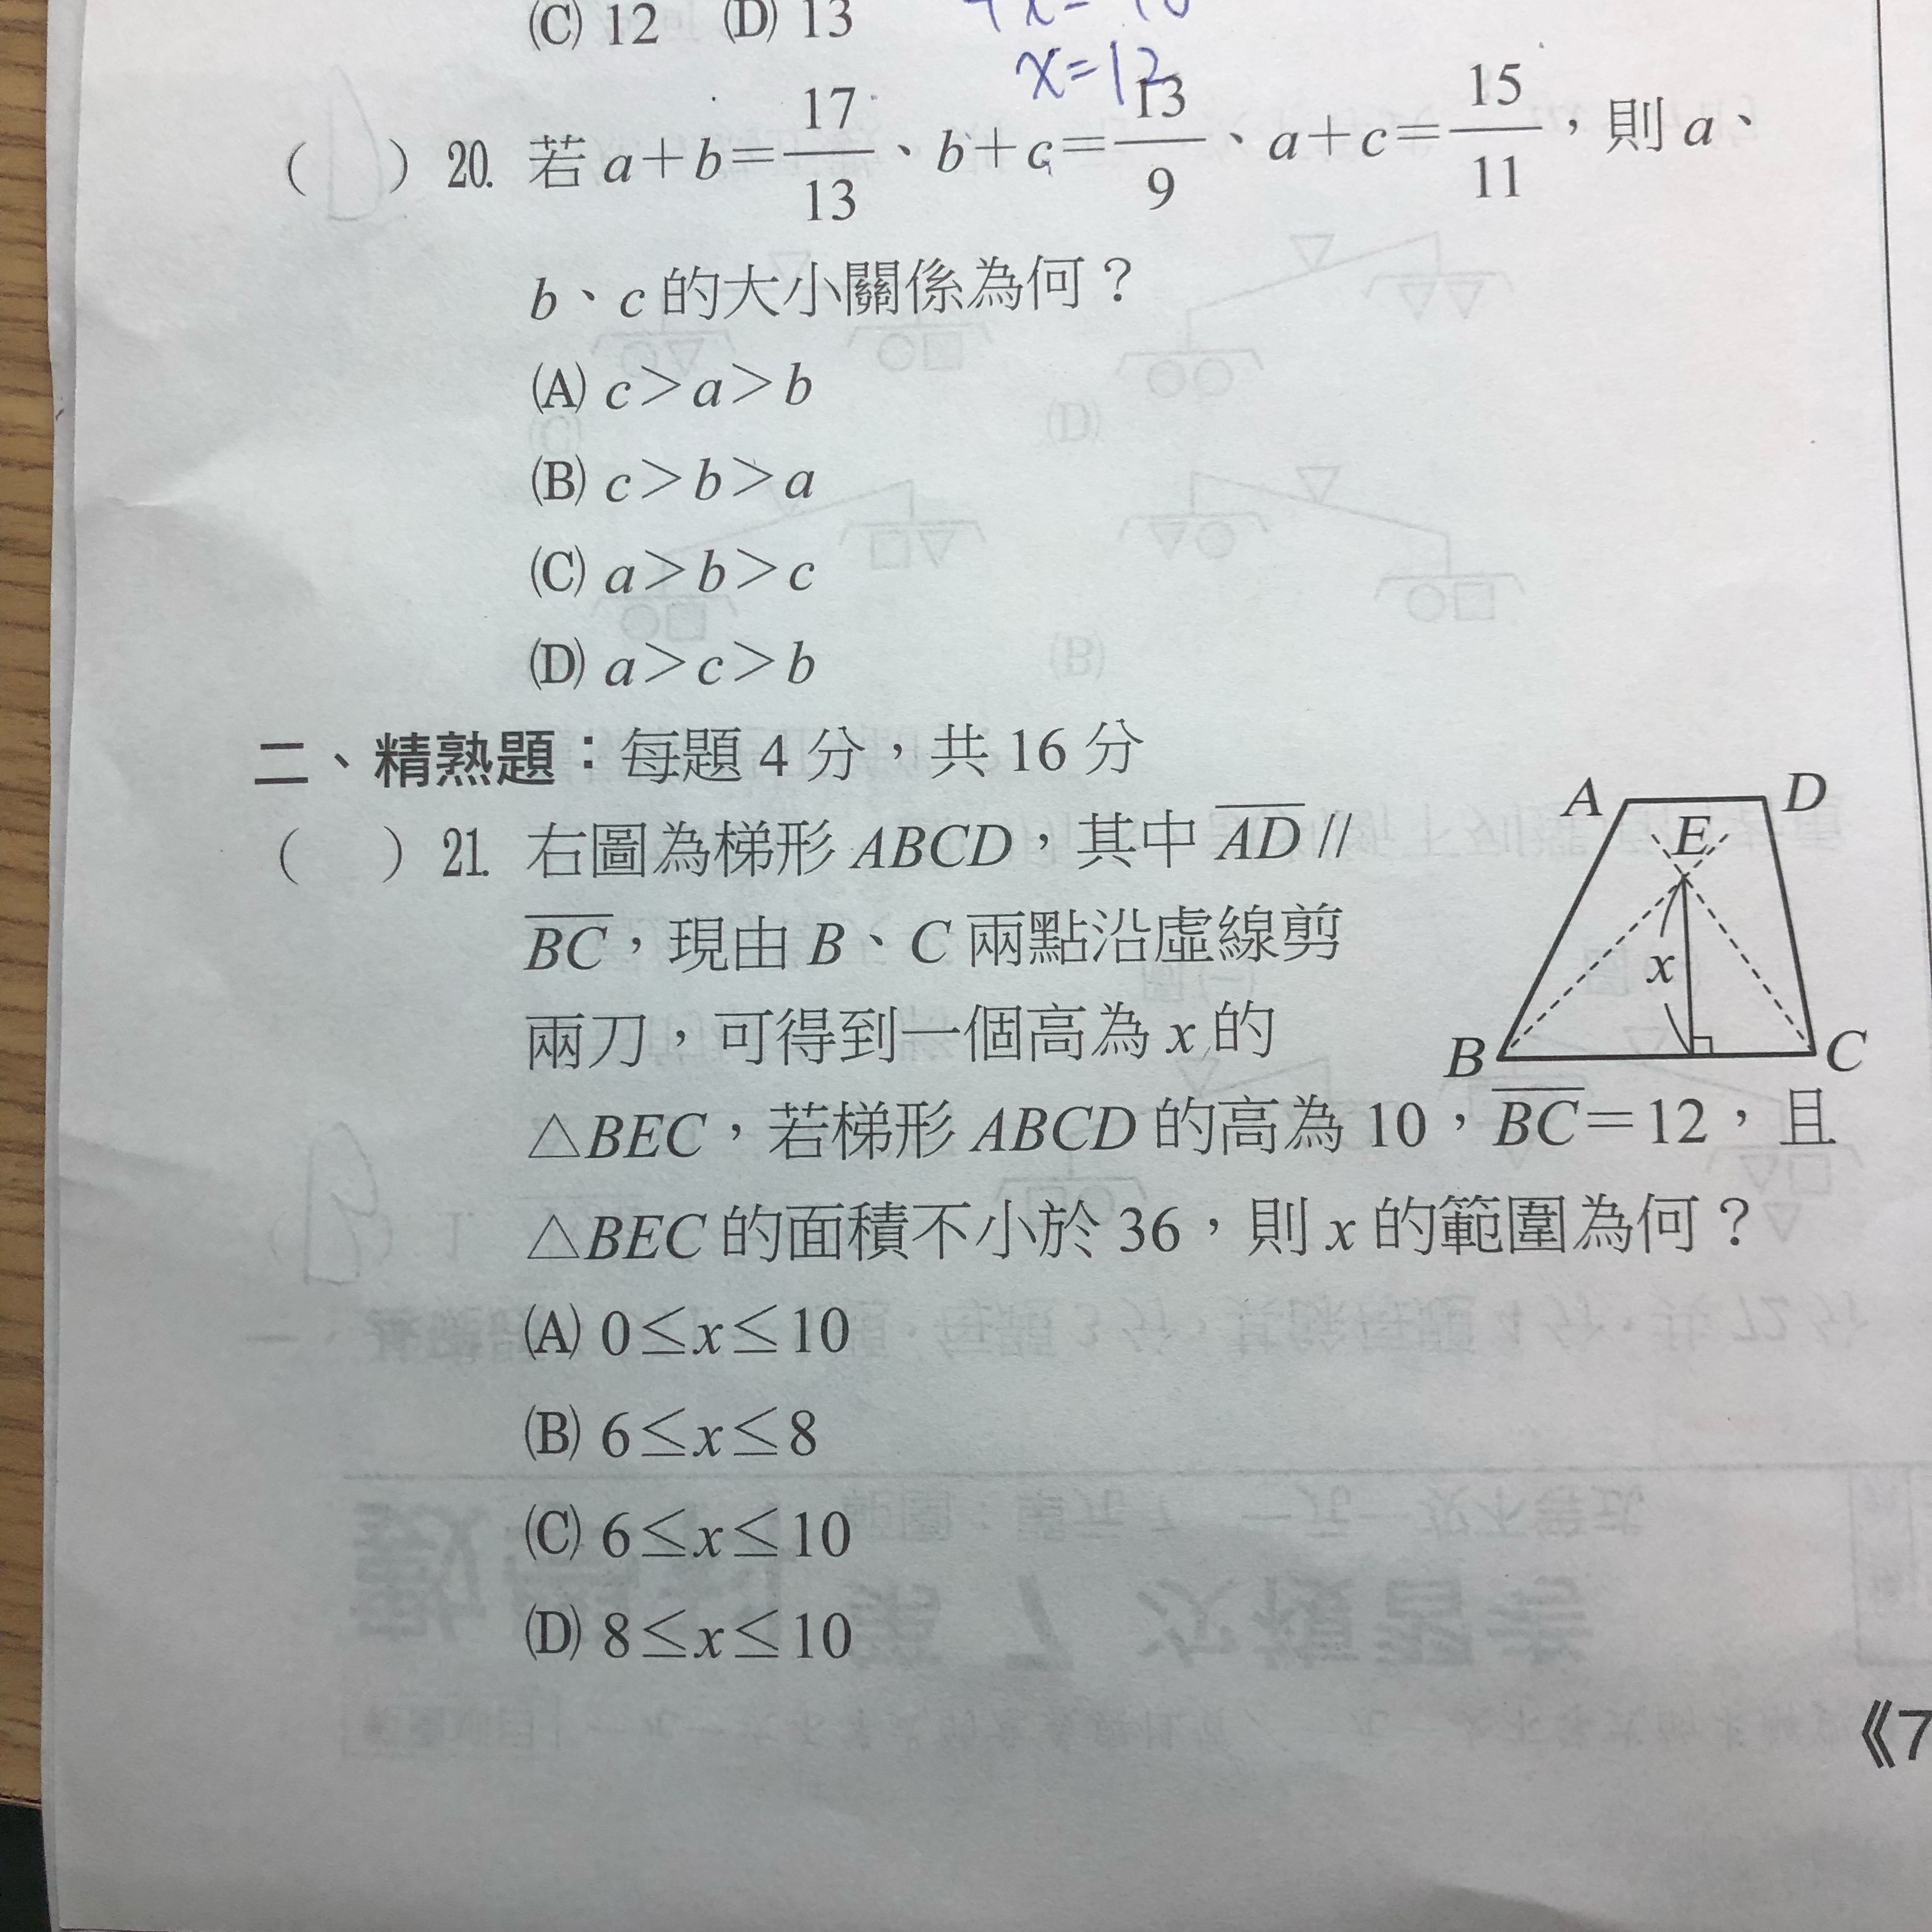 (C) 12 (D) 13
x=12
( ) 20. 若 a+b=17/13、b+c=13/9、a+c=15/11,則 a、
b、c 的大小關係為何?
(A) c>a>b
(B) c>b>a
(C) a>b>c
(D) a>c>b
二、精熟題:每題 4 分,共 16 分
( ) 21. 右圖為梯形 ABCD,其中 A̅D̅ //
B̅C̅,現由 B、C 兩點沿虛線剪
兩刀,可得到一個高為 x 的
△BEC,若梯形 ABCD 的高為 10,B̅C̅=12,且
△BEC 的面積不小於 36,則 x 的範圍為何?
(A) 0≤x≤10
(B) 6≤x≤8
(C) 6≤x≤10
(D) 8≤x≤10
A D
E
x
B C
《7